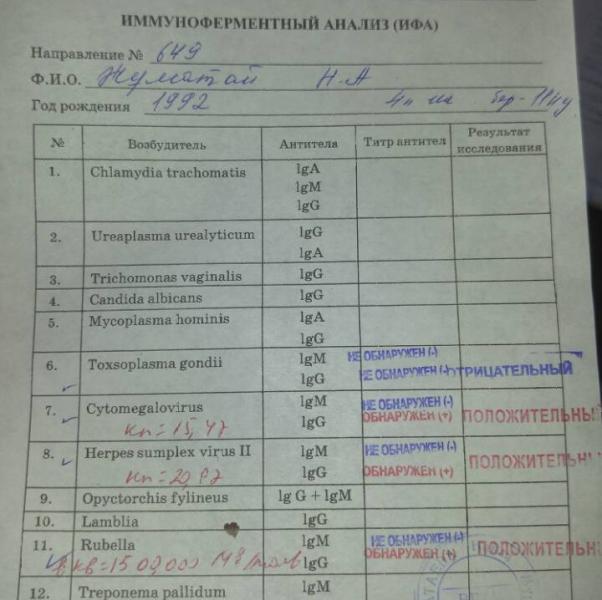 ИММУНОФЕРМЕНТНЫЙ АНАЛИЗ (ИФА)
Направление № 649
Ф.И.О. Н.А
Год рождения 1992
№ Возбудитель Антитела Титр антител Результат исследования
1. Chlamydia trachomatis IgA
IgM
IgG
2. Ureaplasma urealyticum IgG
IgA
3. Trichomonas vaginalis IgG
4. Candida albicans IgG
5. Mycoplasma hominis IgA
IgG
6. Toxsoplasma gondii IgM НЕ ОБНАРУЖЕН (-)
IgG НЕ ОБНАРУЖЕН (-) ОТРИЦАТЕЛЬНЫЙ
7. Cytomegalovirus IgM НЕ ОБНАРУЖЕН (-)
кп=15,47 IgG ОБНАРУЖЕН (+) ПОЛОЖИТЕЛЬНЫЙ
8. Herpes sumplex virus II IgM НЕ ОБНАРУЖЕН (-)
IgG ОБНАРУЖЕН (+) ПОЛОЖИТЕЛЬНЫ
9. Opyctorchis fylineus Ig G + IgM
10. Lamblia IgG
11. Rubella IgM НЕ ОБНАРУЖЕН (-)
IgG ОБНАРУЖЕН (+) ПОЛОЖИТЕЛЬН
12. Treponema pallidum IgM